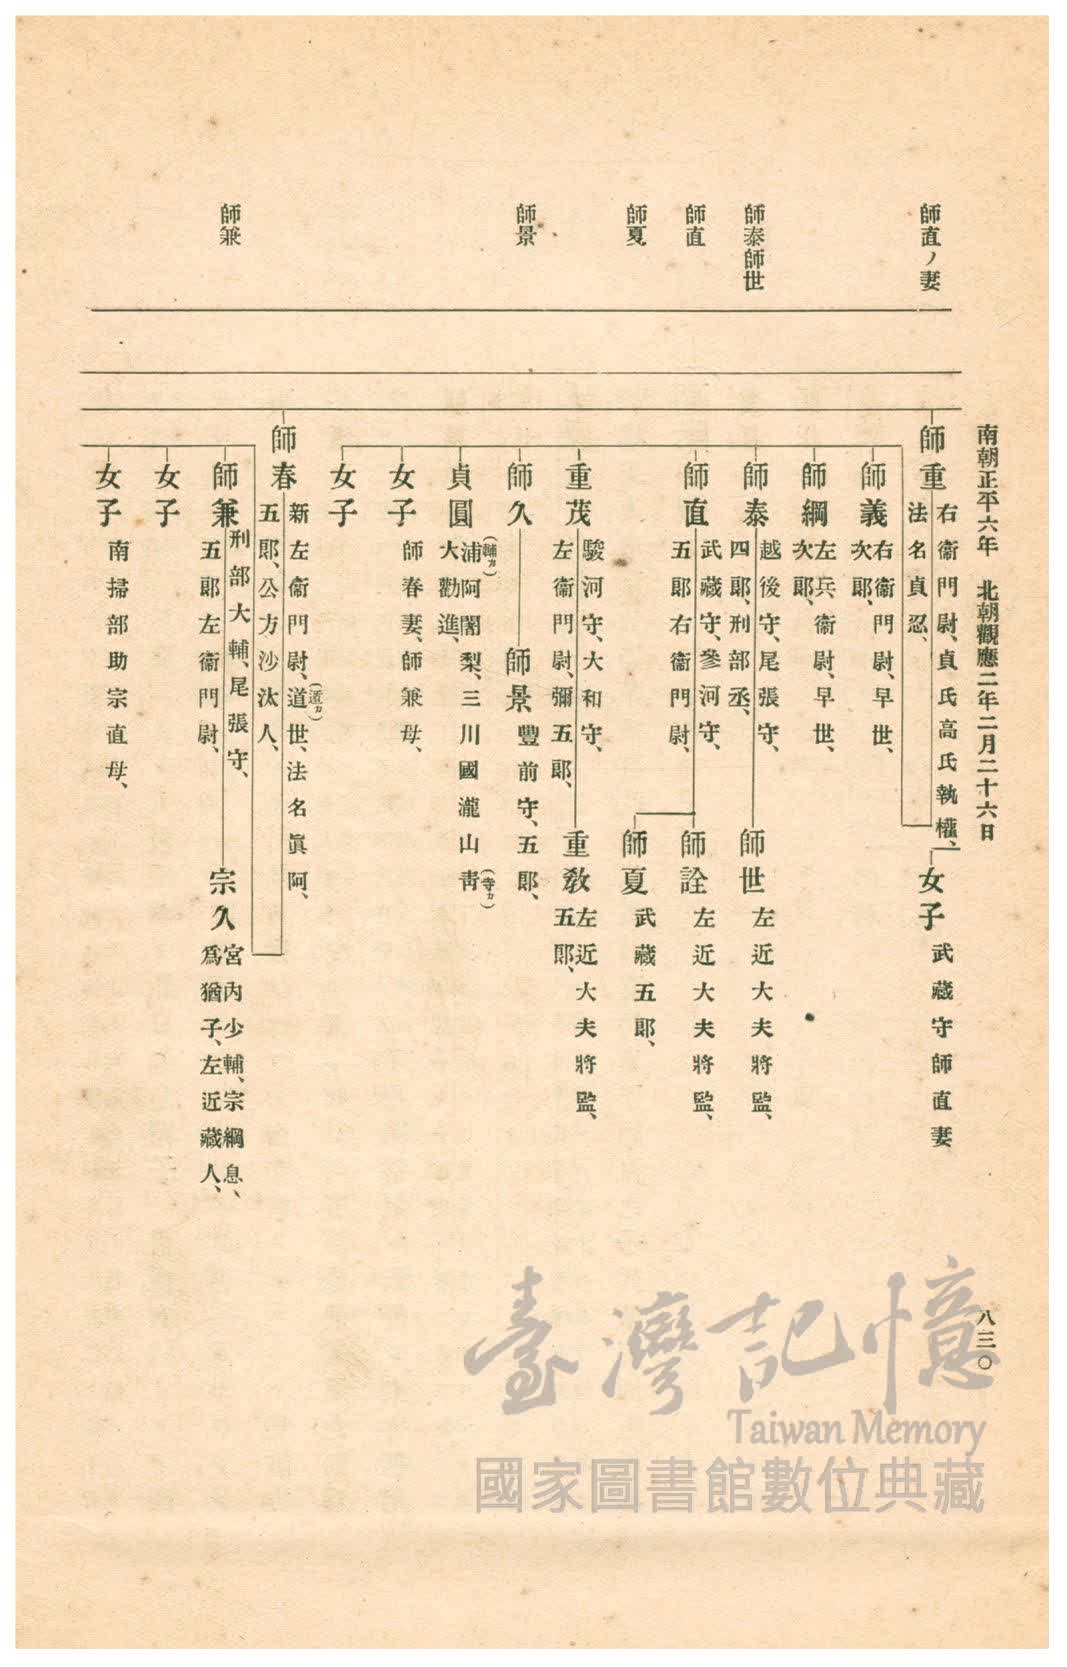 南朝正平六年 北朝觀應二年二月二十六日
八三〇
師直ノ妻
師泰師世
師直
師夏
師景
師兼
師重
右衞門尉、貞氏高氏執權、
法名貞忍、
女子
武藏守師直妻
師義
右衞門尉、早世、
次郎、
師綱
左兵衞尉、早世、
次郎、
師泰
越後守、尾張守、
四郎、刑部丞、
師世
左近大夫將監、
師直
武藏守、參河守、
五郎右衞門尉、
師詮
左近大夫將監、
師夏
武藏五郎、
重茂
駿河守、大和守、
左衞門尉、彌五郎、
重敎
左近大夫將監、
五郎、
師久
師景
豐前守、五郎、
貞圓
浦(輔カ)阿闍梨、三川國瀧山靑(寺カ)
大勸進、
女子
師春妻、師兼母、
女子
師春
新左衞門尉、道(遁カ)世、法名眞阿、
五郎、公方沙汰人、
師兼
刑部大輔、尾張守、
五郎左衞門尉、
宗久
宮內少輔、宗綱息、
爲猶子、左近藏人、
女子
女子
南掃部助宗直母、
臺灣記憶
Taiwan Memory
國家圖書館數位典藏